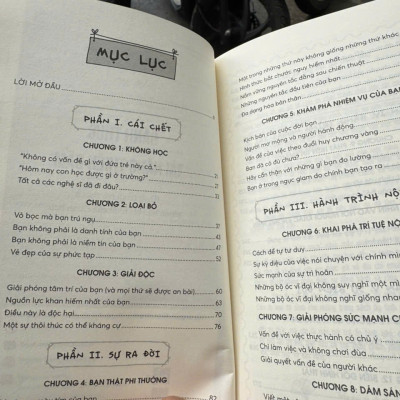 MỤC LỤC
LỜI MỞ ĐẦU
PHẦN I. CÁI CHẾT
CHƯƠNG 1: KHÔNG HỌC
"Không có vấn đề gì với đứa trẻ này cả." 21
"Hôm nay con học được gì ở trường?" 21
Tất cả các nghệ sĩ đã đi đâu?
CHƯƠNG 2: LOẠI BỎ
Vỏ bọc mà bạn trú ngụ 37
Bạn không phải là danh tính của bạn 42
Bạn không phải là niềm tin của bạn 47
Vẻ đẹp của sự phức tạp 53
CHƯƠNG 3: GIẢI ĐỘC
Giải phóng tâm trí của bạn (và mọi thứ sẽ được an bài) 60
Nguồn lực khan hiếm nhất của bạn 63
Điều này là độc hại 70
Một sự thôi thúc có thể kháng cự 76
PHẦN II. SỰ RA ĐỜI
CHƯƠNG 4: BẠN THẬT PHI THƯỜNG
82
Một trong những thứ này không giống những thứ khác
Hình thức bắt chước nguy hiểm nhất
Nấm vững nguyên tắc đằng sau chiến thuật
Những nguyên tắc đầu tiên của bạn
Đa dạng hóa bản thân
CHƯƠNG 5: KHÁM PHÁ NHIỆM VỤ CỦA BẠN
Kịch bản của cuộc đời bạn
Người mơ mộng và người hành động
Vấn đề của việc theo đuổi huy chương vàng
Bạn đã có đủ chưa?
Hãy cẩn thận với những gì bạn đo lường
Bạn ở trong ngục giam do chính bạn tạo ra
PHẦN III. HÀNH TRÌNH NỘ
CHƯƠNG 6: KHAI PHÁ TRÍ TUỆ NỘ
Cách để tự tư duy
Sự kỳ diệu của việc nói chuyện với chính mìn
Sức mạnh của sự trì hoãn
Những bộ óc vĩ đại không suy nghĩ một mì
Những bộ óc vĩ đại không nghĩ giống nhau
CHƯƠNG 7: GIẢI PHÓNG SỨC MẠNH C
Vấn đề với việc thực hành có chủ ý
Chỉ làm việc và không chơi đùa
Giải quyết vấn đề của người khác
CHƯƠNG 8: DÁM SÁN